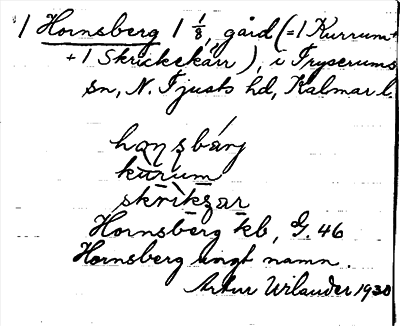 1 Hornsberg 1 1/8, gård (=1 Kurrum+
+1 Skrickekärr), i Tryserums
sn, N. Tjusts hd, Kalmar l.
kurum
Hornsberg kb, G. 46
Hornsberg ungt namn.
Artur Wilander 1930